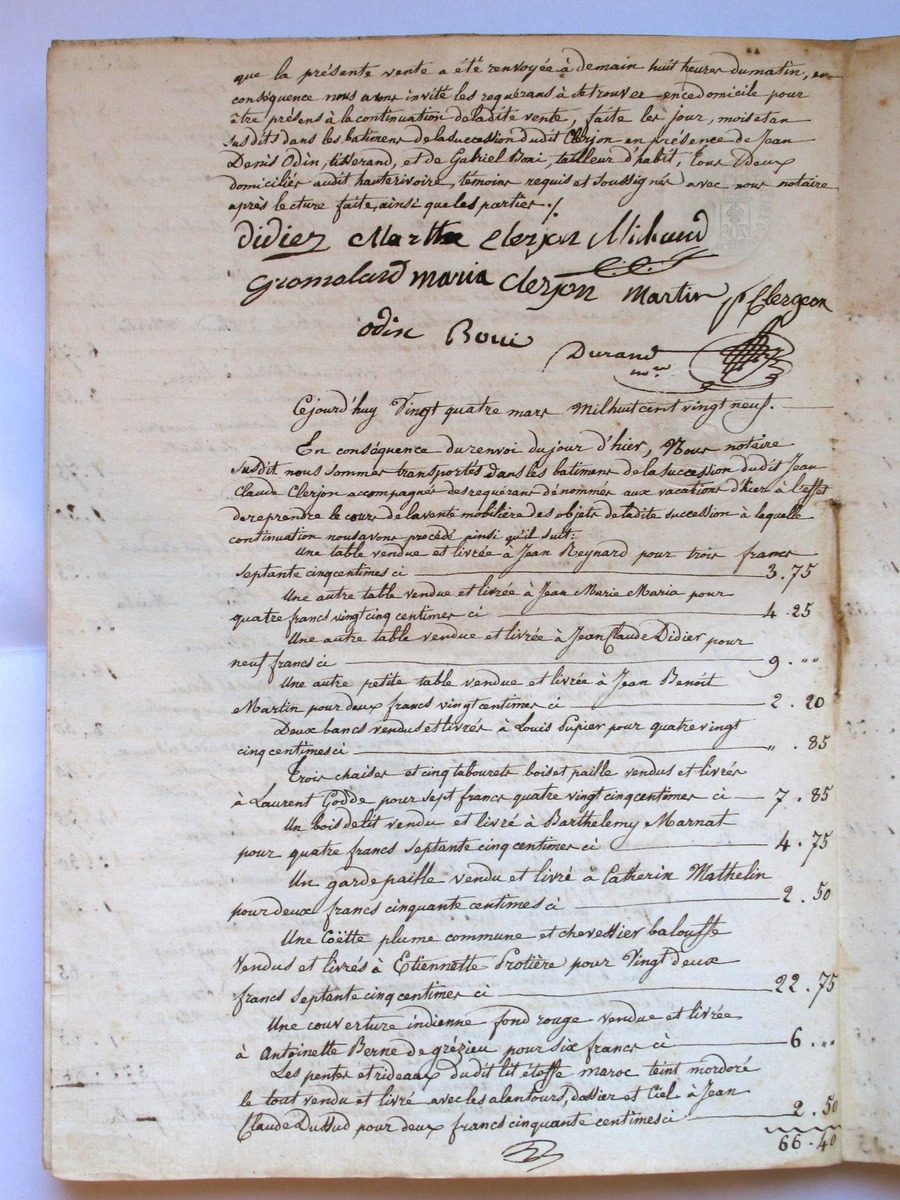 que la présente vente a été renvoyée à demain huit heures du matin, en
conséquence nous avons invité les requérans à se trouver en ce domicile pour
être présens à la continuation de ladite vente, faite les jour, mois et an
susdits dans les batimens de la succession dudit Clerjon en présence de Jean
Denis Odin, tisserand, et de Gabriel Boui, tailleur d'habit, tous deux
domiciliés audit hauterivoire, témoins requis et soussignés avec nous notaire
après lecture faite, ainsi que les parties ./.
Didier Marthe Clerjon Michaud
Gromolard Maria Clerjon Martin Clergeon
odin Boui
Durand
nore
Cejourd'huy Vingt quatre mars Mil huit cent vingt neuf.
En conséquence du renvoi du jour d'hier, Nous notaire
susdit nous sommes transportés dans les batimens de la succession dudit Jean
Claude Clerjon accompagnés des requérans dénommés aux vacations d'hier à l'effet
de reprendre le cours de la vente mobilière des objets de ladite succession à laquelle
continuation nous avons procédé ainsi qu'il suit:
Une table vendue et livrée à Jean Reynard pour trois francs
septante cinq centimes ci 3.75
Une autre table vendue et livrée à Jean Marie Maria pour
quatre francs vingt cinq centimes ci 4.25
Une autre table vendue et livrée à Jean Claude Didier pour
neuf francs ci 9. "
Une autre petite table vendue et livrée à Jean Benoit
Martin pour deux francs vingt centimes ci 2.20
Deux bancs vendus et livrés à Louis Pupier pour quatre vingt
cinq centimes ci " .85
Trois chaises et cinq tabourets bois et paille vendus et livrés
à Laurent Godde pour sept francs quatre vingt cinq centimes ci 7.85
Un bois de lit vendu et livré à Barthelemy Marnat
pour quatre francs septante cinq centimes ci 4.75
Un garde paille vendu et livré à Catherin Mathelin
pour deux francs cinquante centimes ci 2.50
Une Coëtte plume commune et chevessier balouffe
vendus et livrés à Etiennette Protière pour Vingt deux
francs septante cinq centimes ci 22.75
Une couverture indienne fond rouge vendue et livrée
à Antoinette Berne de grézieu pour six francs ci 6. "
Les pentes et rideaux dudit lit étoffe maroc teint mordoré
le tout vendu et livré avec les alentours, dossier et Ciel à Jean
Claude Dussud pour deux francs cinquante centimes ci 2.50
66.40